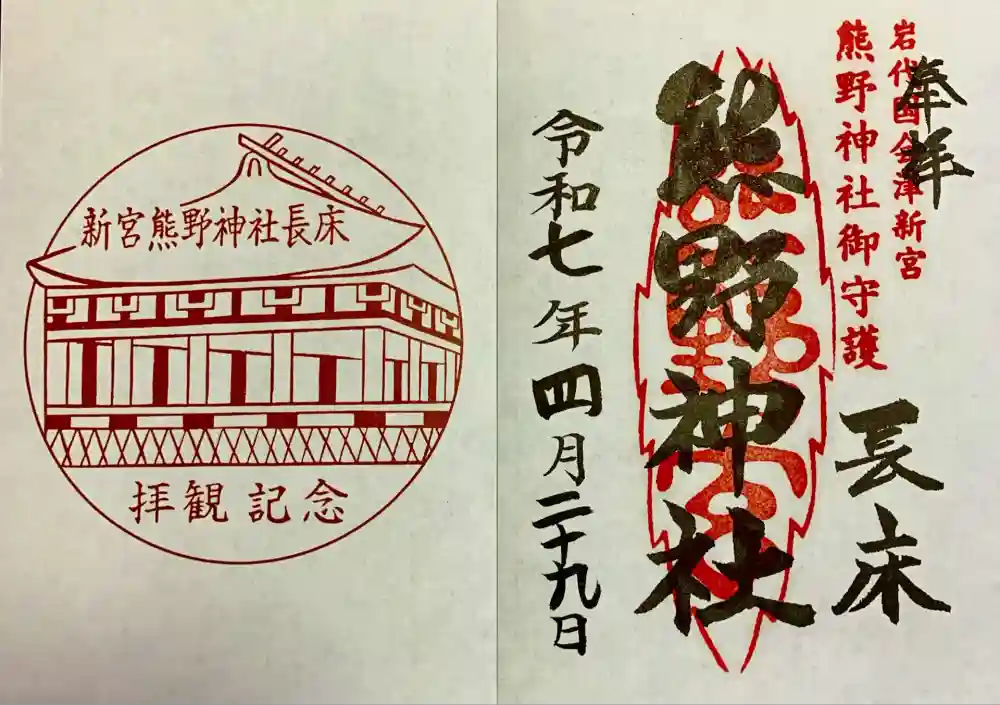 奉拝
岩代国会津新宮
熊野神社御守護
長床
熊野神社
令和七年四月二十九日
新宮熊野神社長床
拝観記念